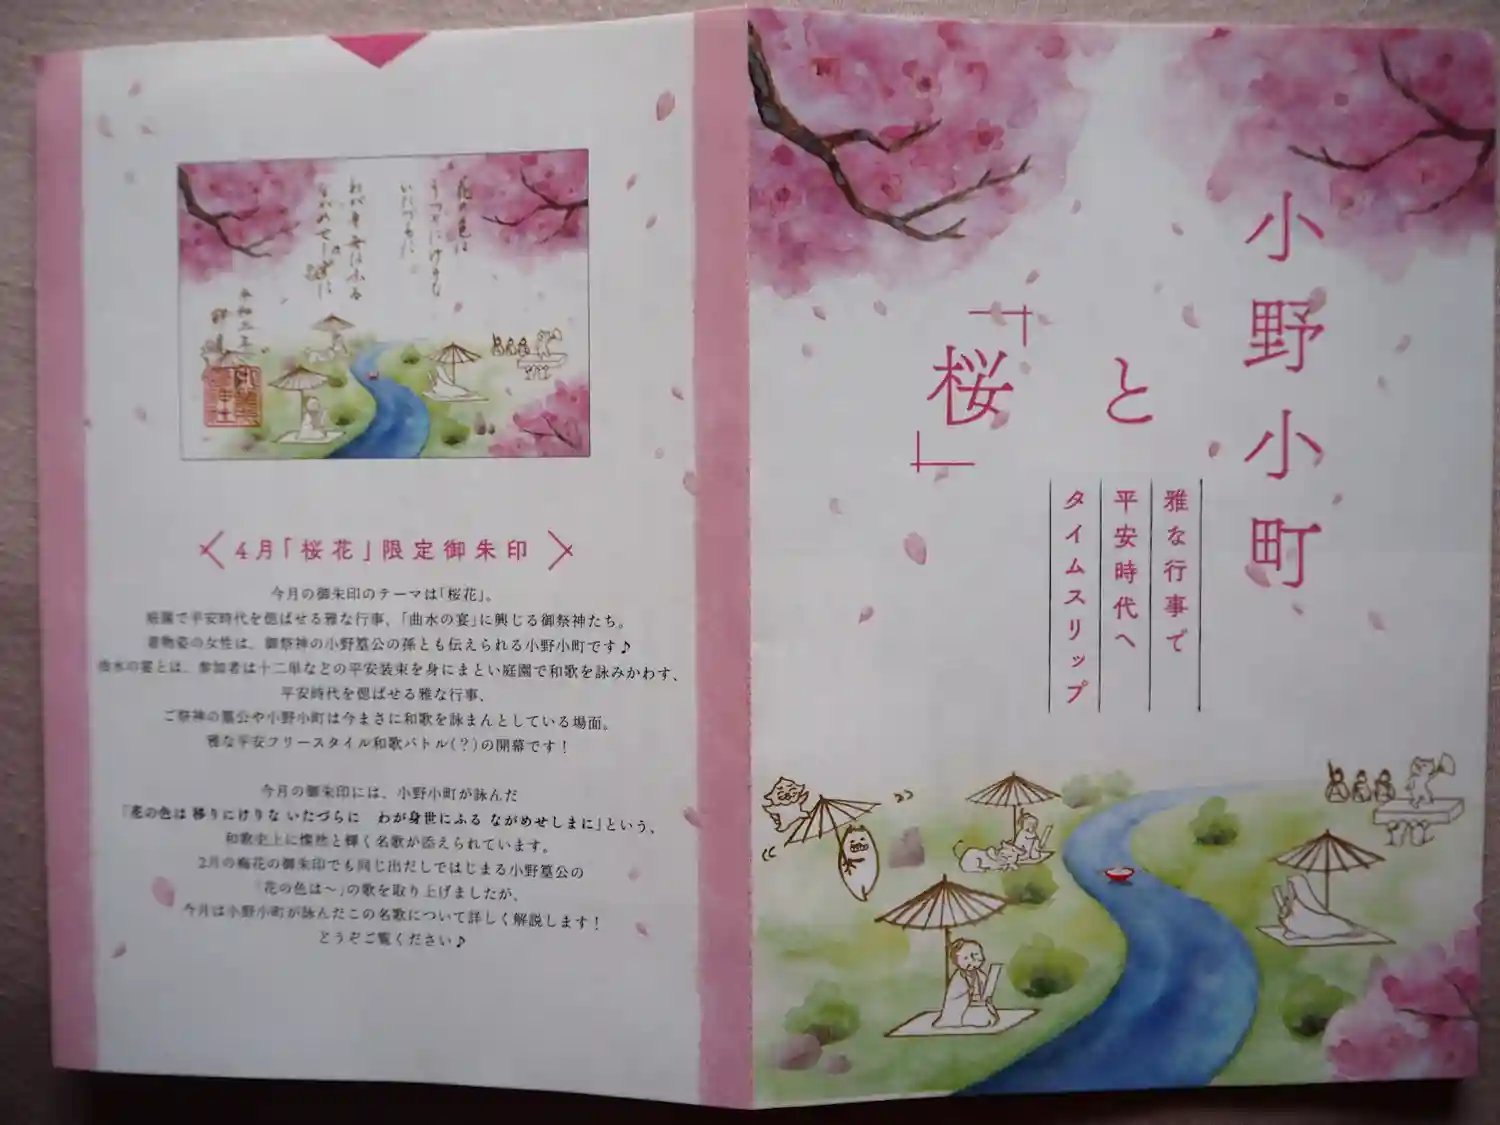 小野小町
と
「桜」
雅な行事で
平安時代へ
タイムスリップ
花の色は
うつりにけりな
いたづらに
わが身世にふる
ながめせしまに
4月「桜花」限定御朱印
今月の御朱印のテーマは「桜花」。
庭園で平安時代を偲ばせる雅な行事、「曲水の宴」に興じる御祭神たち。
着物姿の女性は、御祭神の小野篁公の孫とも伝えられる小野小町です♪
曲水の宴とは、参加者は十二単などの平安装束を身にまとい庭園で和歌を詠みかわす、
平安時代を偲ばせる雅な行事、
ご祭神の篁公や小野小町は今まさに和歌を詠まんとしている場面。
雅な平安フリースタイル和歌バトル(?)の開幕です！
今月の御朱印には、小野小町が詠んだ
「花の色は 移りにけりな いたづらに　わが身世にふる ながめせしまに」という、
和歌史上に燦然と輝く名歌が添えられています。
2月の梅花の御朱印でも同じ出だしではじまる小野篁公の
「花の色は〜」の歌を取り上げましたが、
今月は小野小町が詠んだこの名歌について詳しく解説します！
どうぞご覧ください♪